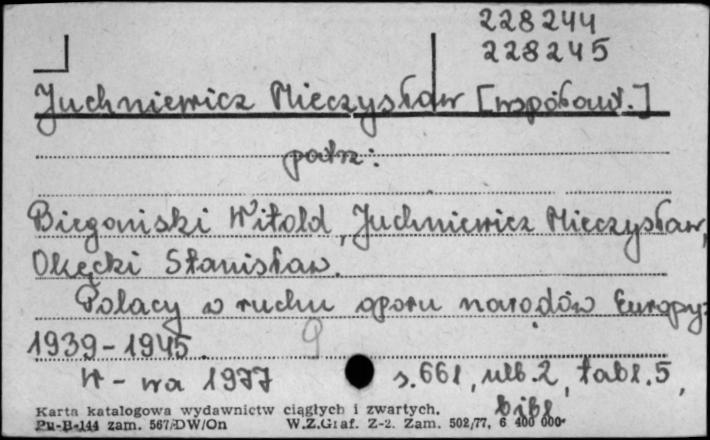 228244
228245
Juchniewicz Mieczysław [współaut.]
patrz:
Biegański Witold, Juchniewicz Mieczysław,
Okęcki Stanisław.
Polacy w ruchu oporu narodów Europy:
1939-1945. 9
W-wa 1977 s.661, nlb.2, tabl.5,
bibl.
Karta katalogowa wydawnictw ciągłych i zwartych.
Pu-B-144 zam. 567/DW/On W.Z.Graf. Z-2. Zam. 502/77, 6 400 000